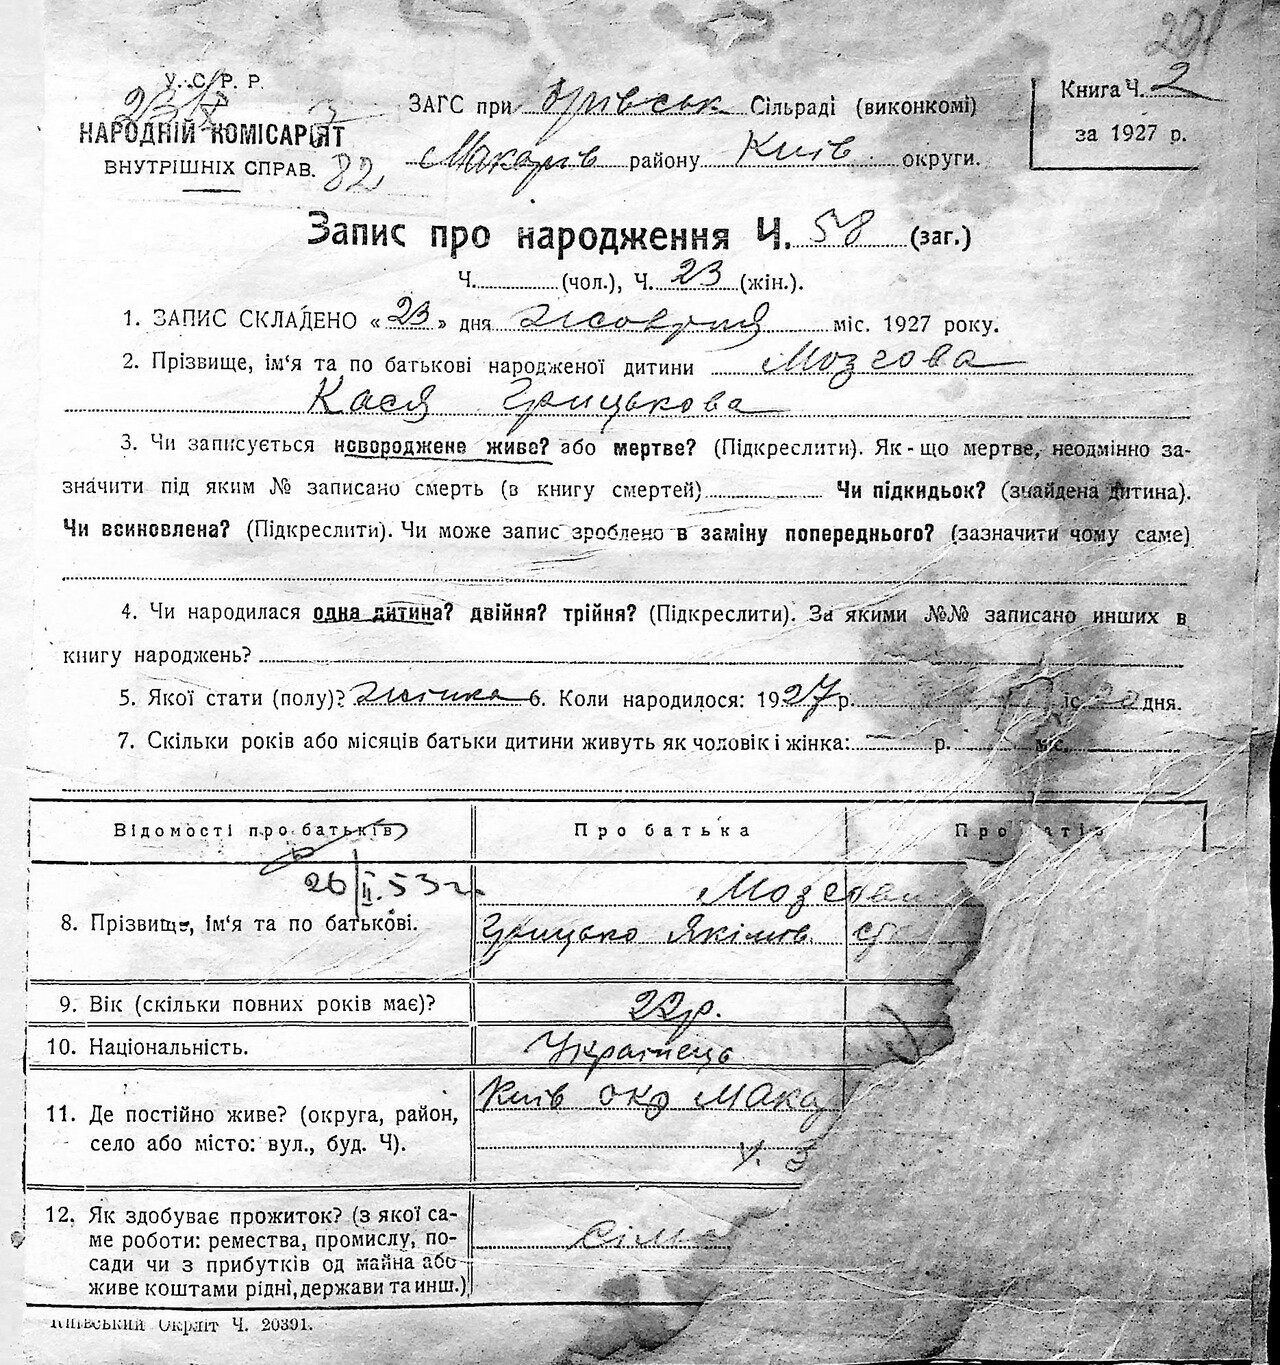 201
У. С. Р. Р.
НАРОДНІЙ КОМІСАРІЯТ
ВНУТРІШНІХ СПРАВ.
82
ЗАГС при Сільраді (виконкомі)
Макарів району Київ округи.
Книга Ч. 2
за 1927 р.
Запис про народження Ч. 58 (заг.)
Ч. (чол.), Ч. 23 (жін.).
1. ЗАПИС СКЛАДЕНО « 23 » дня жовтня міс. 1927 року.
2. Прізвище, ім‘я та по батькові народженої дитини Мозгова
Кася Грицькова
3. Чи записується новороджене живе? або мертве? (Підкреслити). Як-що мертве, неодмінно за-
значити під яким № записано смерть (в книгу смертей) Чи підкидьок? (знайдена дитина).
Чи всиновлена? (Підкреслити). Чи може запис зроблено в заміну попереднього? (зазначити чому саме)
4. Чи народилася одна дитина? двійня? трійня? (Підкреслити). За якими №№ записано инших в
книгу народжень?
5. Якої стати (полу)? жіноча 6. Коли народилося: 1927 р. міс. 20 дня.
7. Скільки років або місяців батьки дитини живуть як чоловік і жінка: р. міс.
Відомості про батьків Про батька Про матір
26/II.53 г.
Мозгови
8. Прізвище, ім‘я та по батькові. Грицько Якімів
9. Вік (скільки повних років має)? 22 р.
10. Національність. Українець
11. Де постійно живе? (округа, район, Київ окр Мака
село або місто: вул., буд. Ч).
12. Як здобуває прожиток? (з якої са-
ме роботи: ремества, промислу, по-
сади чи з прибутків од майна або
живе коштами рідні, держави та инш.)
Київський Окрліт Ч. 20391.